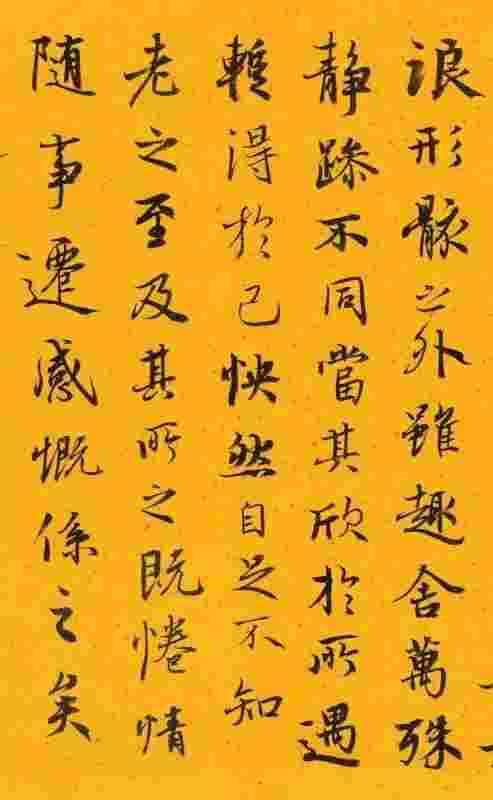 浪形骸之外雖趣舍萬殊
静躁不同當其欣於所遇
蹔得於己怏然自足不知
老之至及其所之既惓情
随事遷感慨係之矣